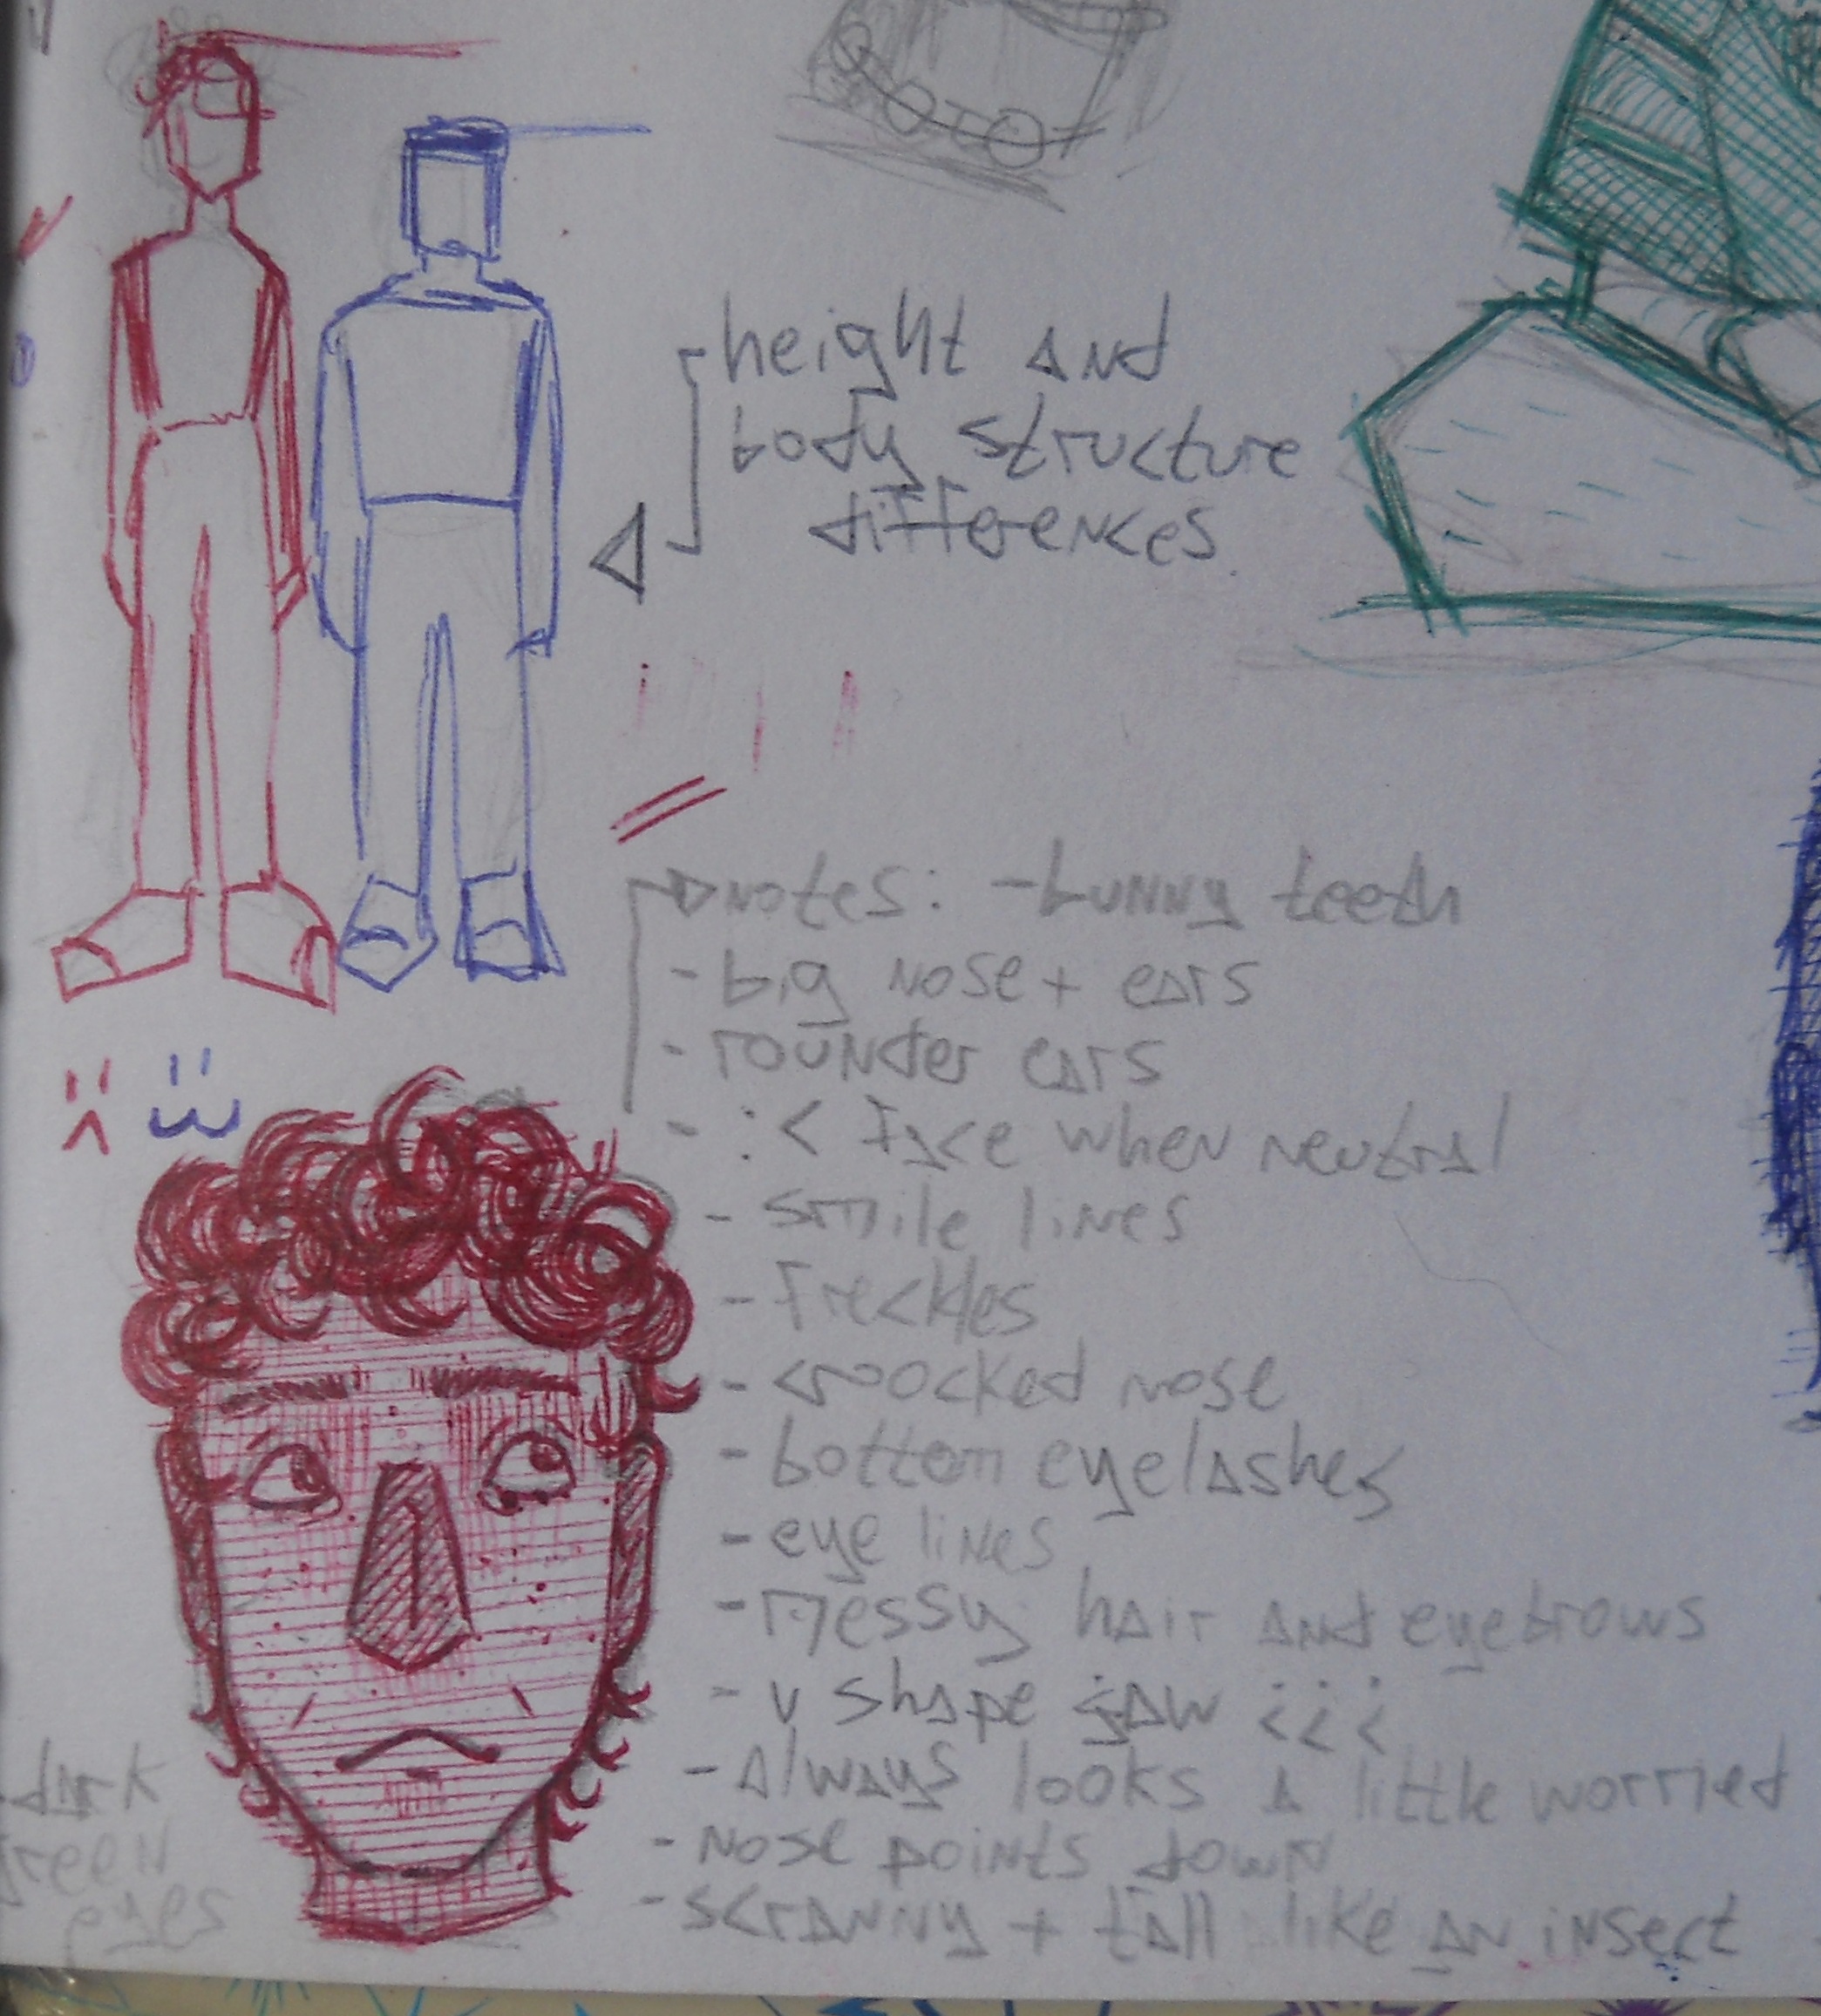 height and
body structure
differences.
notes: -bunny teeth
- big nose + ears
- rounder ears
- :< face when neutral
- smile lines
- freckles
- croocked nose
- bottom eyelashes
- eye lines
- messy hair and eyebrows
- v shape jaw ¿¿¿
- always looks a little worried
- nose points down
- scranny + tall like an insect
dark
green
eyes